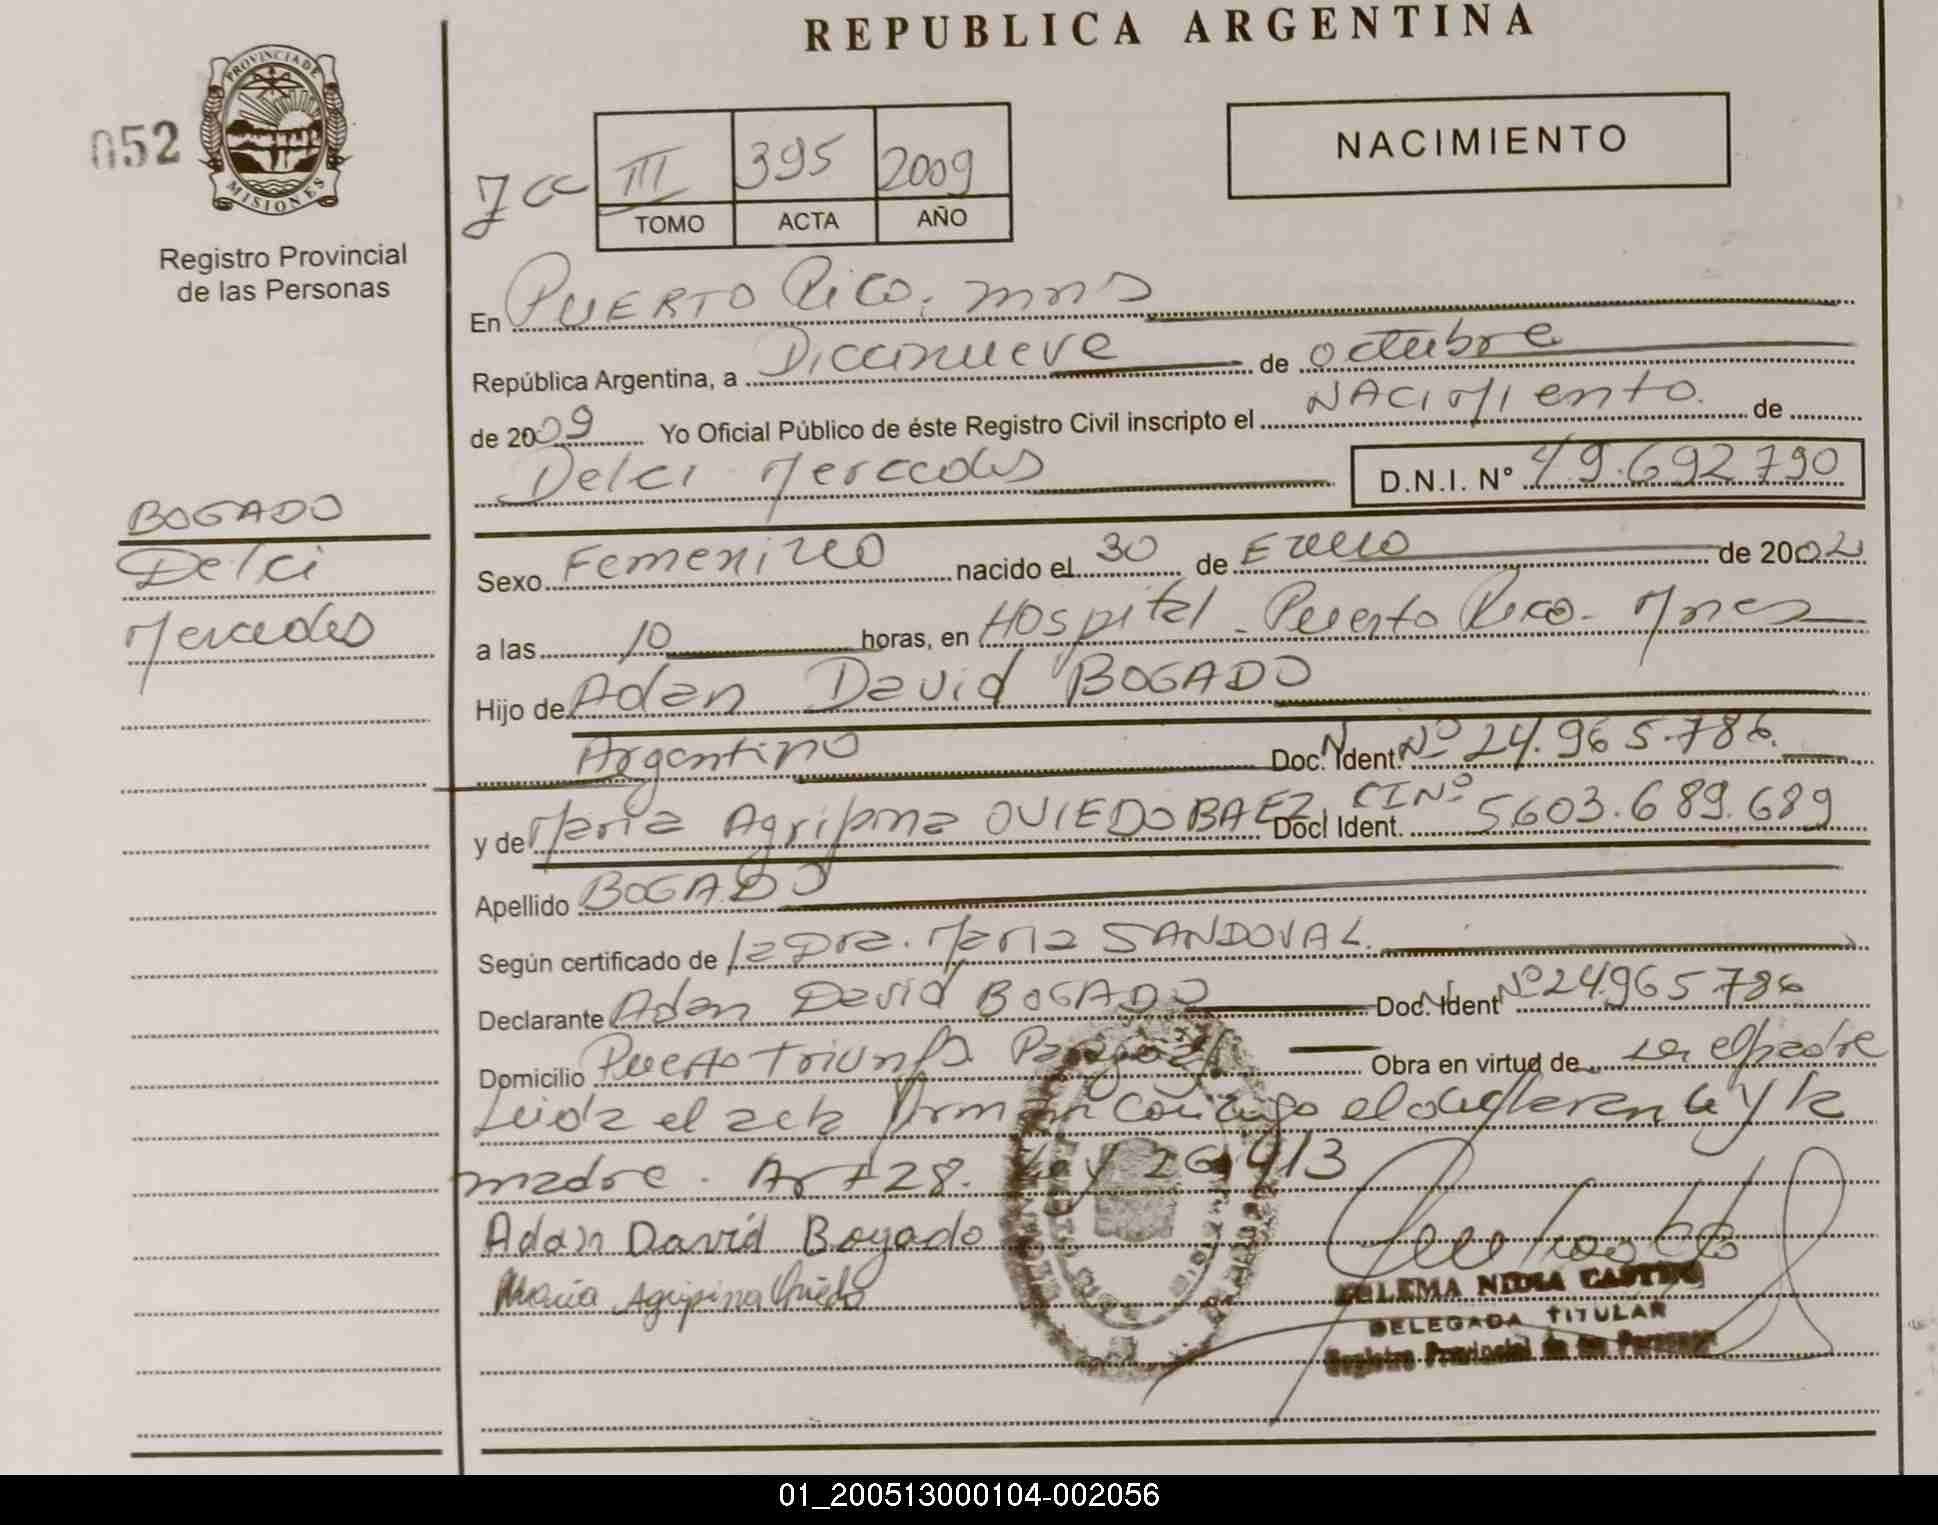 REPUBLICA ARGENTINA
PROVINCIA DE
MISIONES
052
Registro Provincial
de las Personas
III 395 2009
TOMO ACTA AÑO
NACIMIENTO
En PUERTO Rico. mns
República Argentina, a Diecinueve de octubre
de 2009 Yo Oficial Público de éste Registro Civil inscripto el NACIMIENTO. de
Delci Mercedes D.N.I. N° 49.692790
BOGADO
Delci
Mercedes
Sexo Femenino nacido el 30 de Enero de 2002
a las 10 horas, en Hospital - Puerto Rico - Mnes
Hijo de Adan David BOGADO
Argentino Doc. N Ident. N° 24.965.786.
y de Maria Agripina OVIEDO BAEZ, CI N° Doc. Ident. 5603.689.689
Apellido BOGADO
Según certificado de la Dra. Maria SANDOVAL.
Declarante Adan David BOGADO Doc. N Ident N° 24.965786
Domicilio Puerto Triunfo Paraguay Obra en virtud de ser el padre
Leida el acta firman conmigo el declarante y la
madre. Art 28. Ley 26.413
Adan David Bogado
Maria Agripina Oviedo
ZULEMA NIDIA CASTRO
DELEGADA TITULAR
Registro Provincial de las Personas
01_200513000104-002056